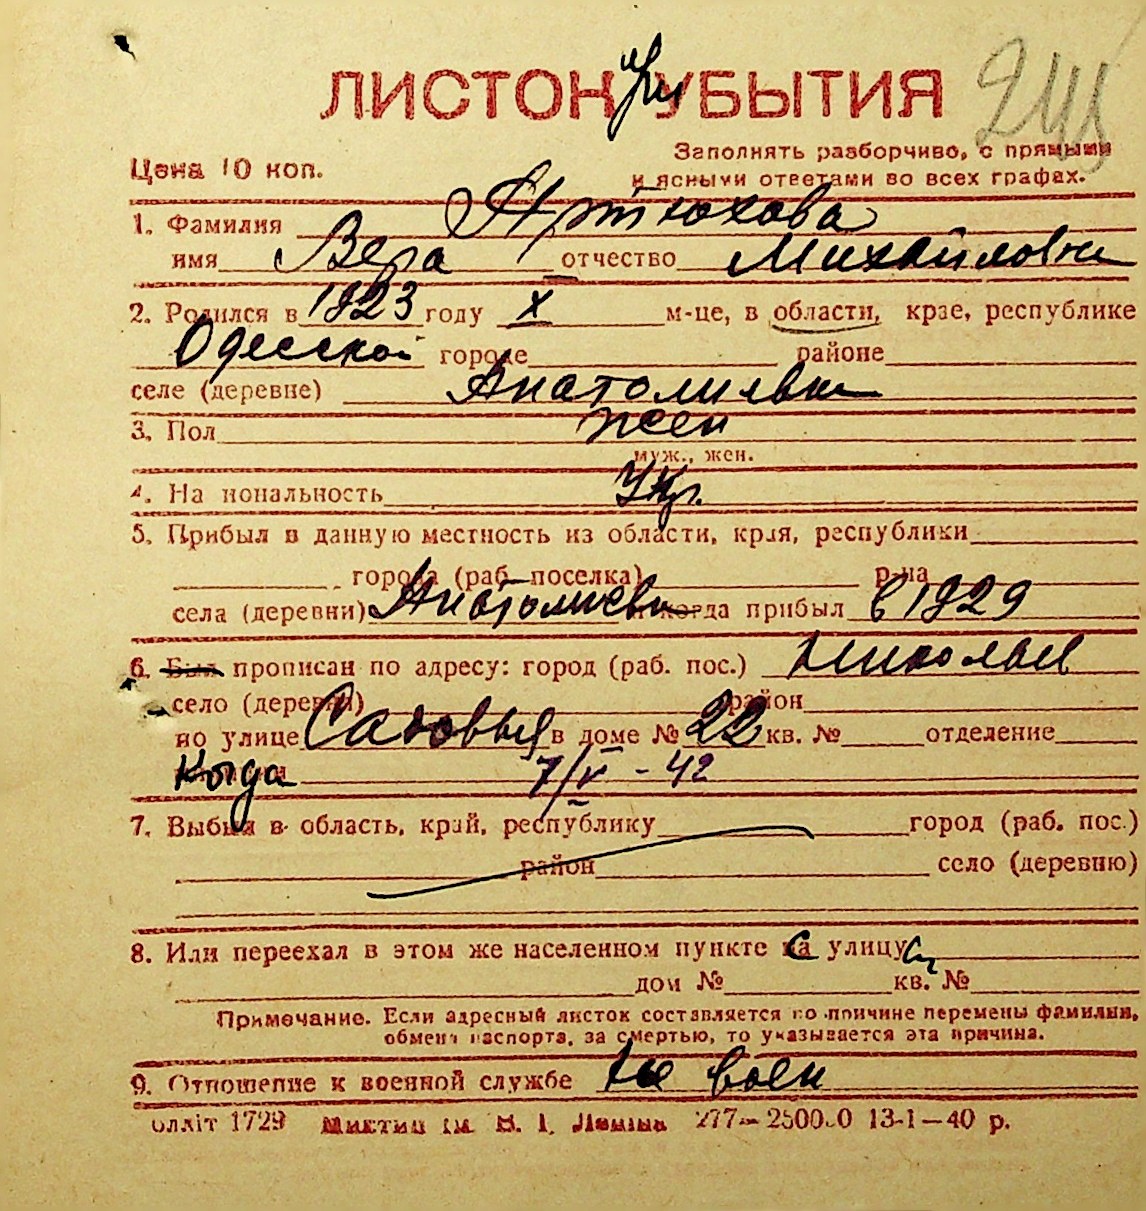 ЛИСТОК при УБЫТИЯ
245
Цена 10 коп.
Заполнять разборчиво, с прямыми
и ясными ответами во всех графах.
1. Фамилия Артюхова
имя Вера отчество Михайловна
2. Родился в 1923 году X м-це, в области, крае, республике
Одесской городе районе
селе (деревне) Анатолиевка
3. Пол жен
муж., жен.
4. Национальность Укр.
5. Прибыл в данную местность из области, края, республики
города (раб. поселка) р-на
села (деревни) Анатолиевки когда прибыл в 1929
6. Был прописан по адресу: город (раб. пос.) Николаев
село (деревня) район
по улице Садовья в доме № 22 кв. № отделение
Когда 7/V - 42
7. Выбыл в область, край, республику город (раб. пос.)
район село (деревню)
8. Или переехал в этом же населенном пункте на с улицу
дом № кв. №
Примечание. Если адресный листок составляется по причине перемены фамилии,
обмена паспорта, за смертью, то указывается эта причина.
9. Отношение к военной службе Не воен
олліт 1729 ім. В. І. Леніна 277— 25000 13-1—40 р.